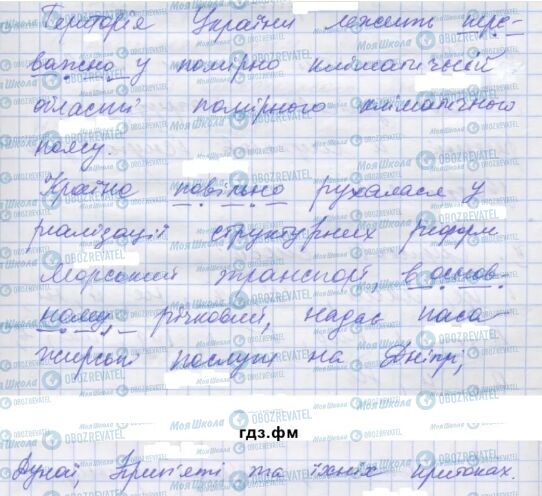 Територія України лежить пере-
важно у помірно кліматичній
області помірного кліматичного
поясу.
Країна повільно рухалася у
реалізації структурних реформ
Морський транспорт, в основ
ному річковий, надає паса
жирські послуги на Дніпрі,
гдз.фм
Дунаї, Прип'яті та їхніх притоках.